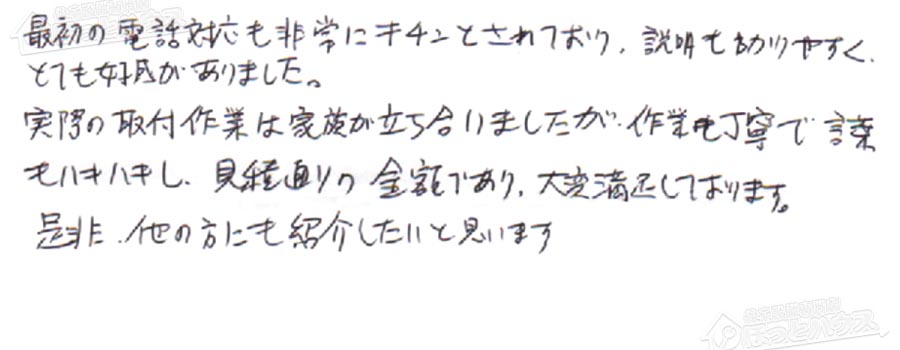 最初の電話対応も非常にキチンとされており、説明も分かりやすく、
とても好感がありました。
実際の取付作業は家族が立ち合いましたが、作業も丁寧で言葉
もハキハキし、見積通りの金額であり、大変満足しております。
是非、他の方にも紹介したいと思います
ほっとハウス